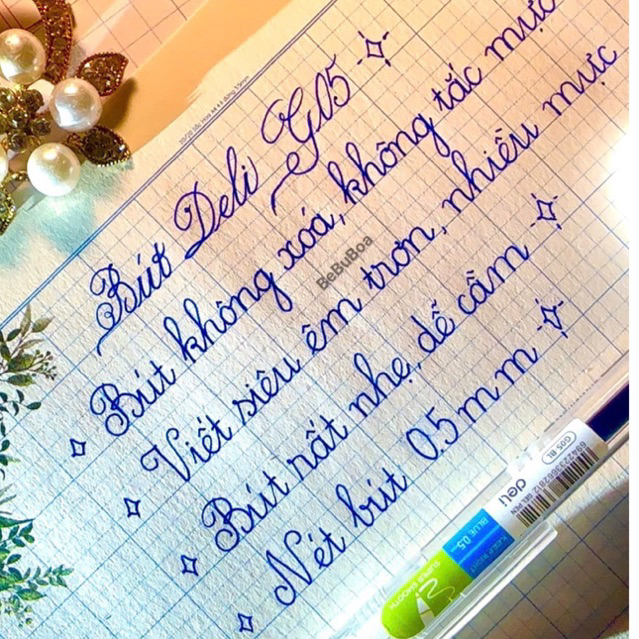 Bút Deli G05
Bút không xóa, không tắc mực
Viết siêu êm trơn, nhiều mực
Bút rất nhẹ, dễ cầm
Nét bút 0.5mm
BeBuBoa
G05 BL
deli
GEL PEN
BLUE 0.5
SUPER SMOOTH